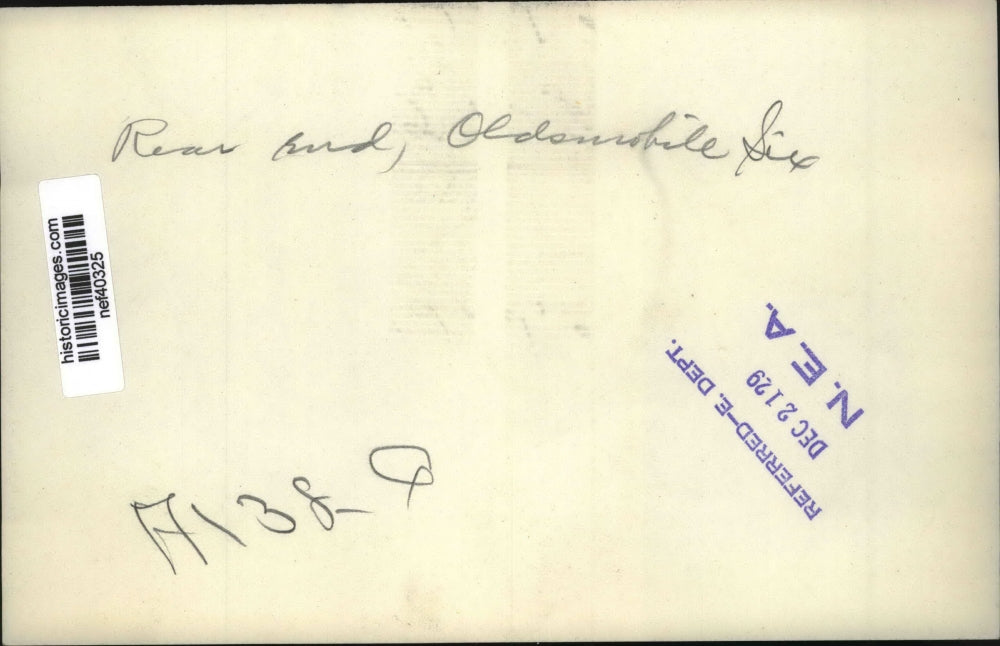 Rear end, Oldsmobile Six
historicimages.com
nef40325
REFERRED-E. DEPT.
DEC 21 29
N. E. A.
A138-9